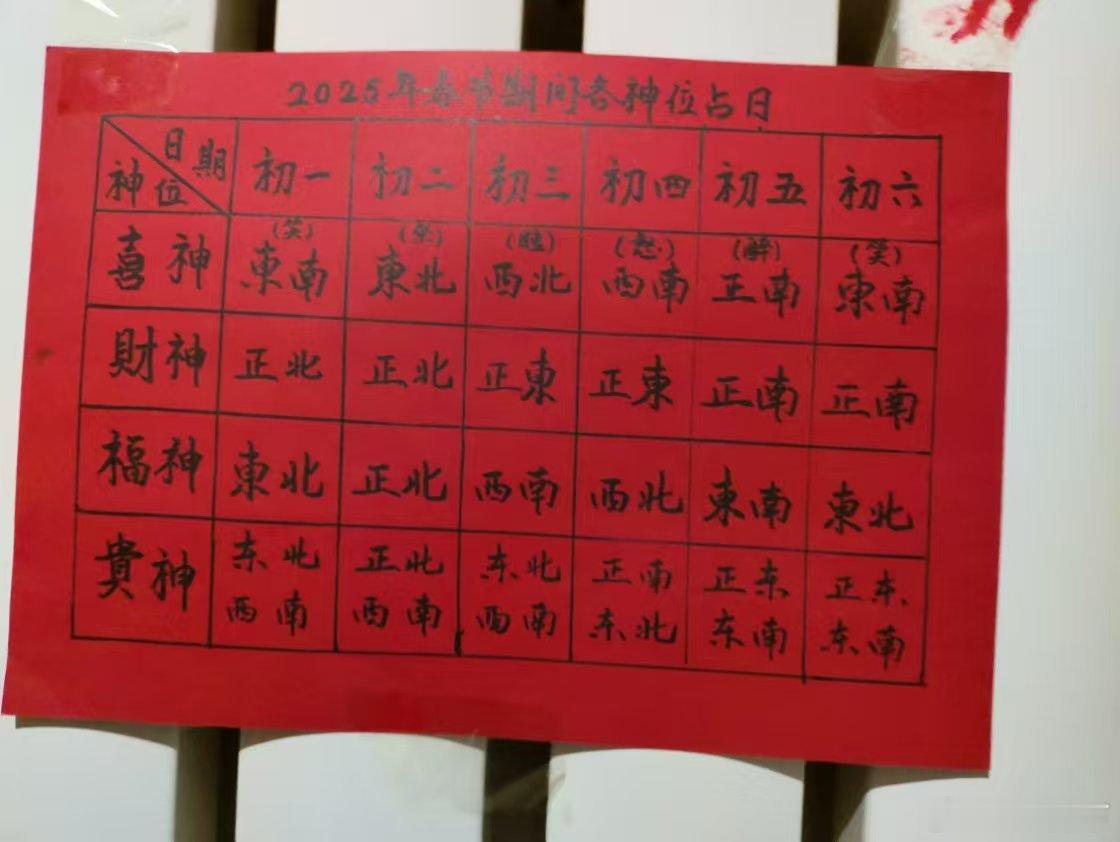 2025年春节期间各神位占日
日期
神位
初一 初二 初三 初四 初五 初六
(笑) (坐) (睡) (怒) (醉) (笑)
喜神 東南 東北 西北 西南 正南 東南
財神 正北 正北 正東 正東 正南 正南
福神 東北 正北 西南 西北 東南 東北
貴神 东北 正北 东北 正南 正东 正东
西南 西南 西南 东北 东南 东南